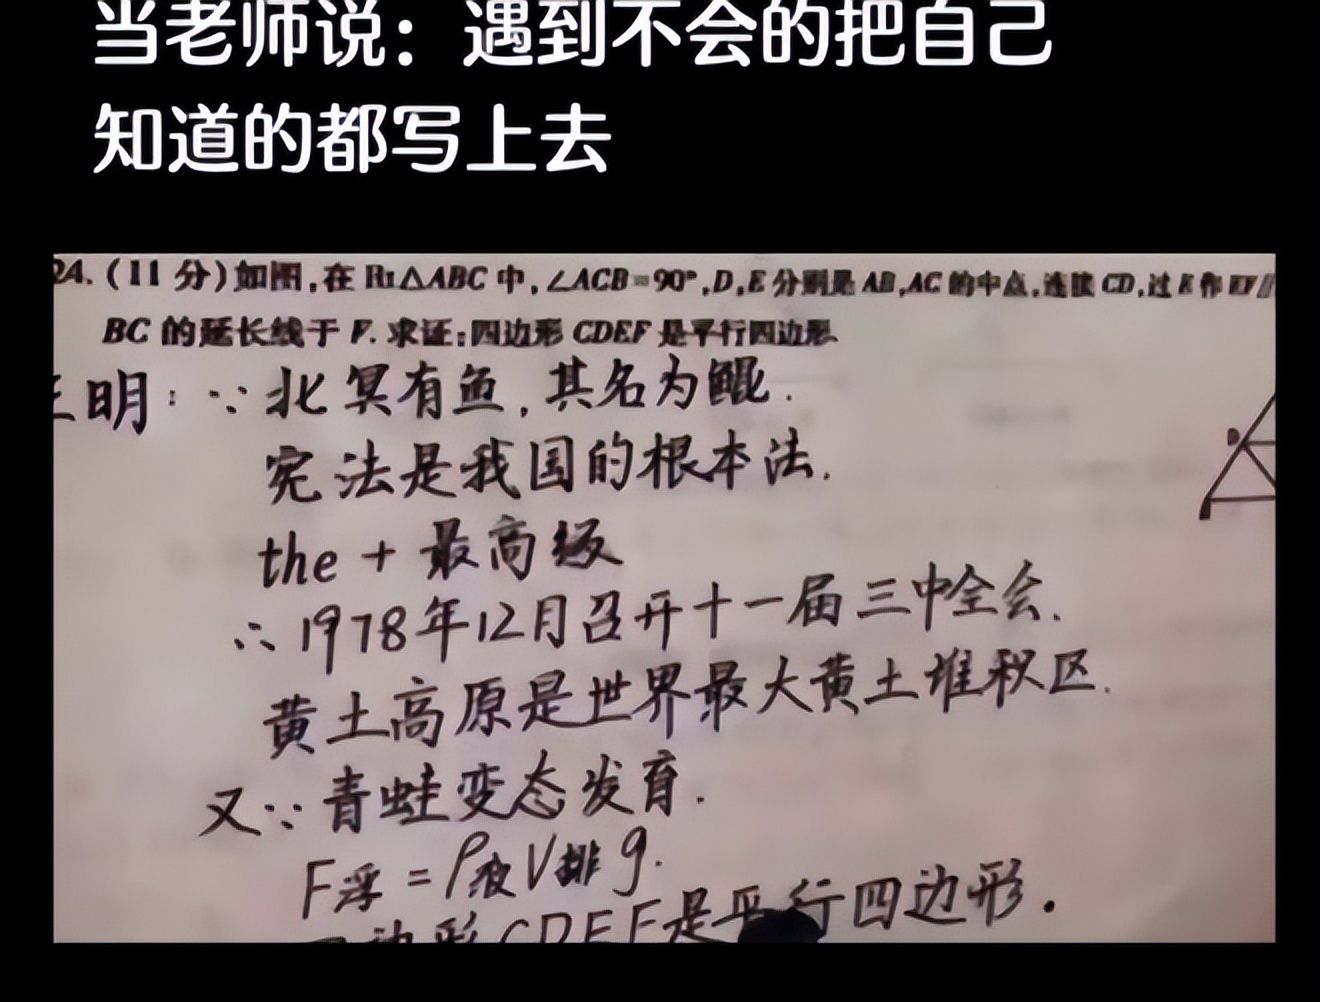 当老师说：遇到不会的把自己
知道的都写上去
24.(11 分)如图,在 Rt△ABC 中,∠ACB=90°,D,E 分别是 AB,AC 的中点,连接 CD,过 E 作 EF∥
BC 的延长线于 F. 求证:四边形 CDEF 是平行四边形.
明：∵北冥有鱼,其名为鲲.
宪法是我国的根本法.
the + 最高级
∴1978年12月召开十一届三中全会.
黄土高原是世界最大黄土堆积区.
又∵青蛙变态发育.
F浮=ρ液V排g.
边形CDEF是平行四边形.
D